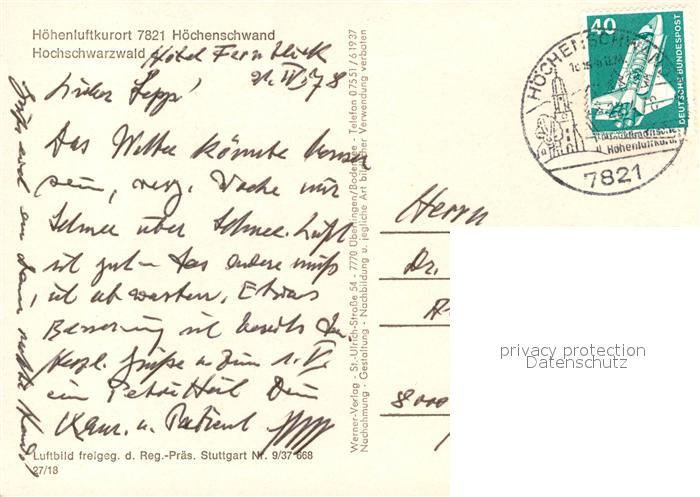 Höhenluftkurort 7821 Höchenschwand
Hochschwarzwald Hotel Fernblick
21. IV. 78
Lieber Sepp!
Das Wetter könnte besser
sein, verg. Woche nur
Schnee über Schnee. Luft
ist gut – das andere muß
ich abwarten. Etwas
Besserung ist bereits da.
Herzl. Grüße u. zum 1. V.
ein Petri Heil Dein
Kam. u. Patient
Luftbild freigeg. d. Reg.-Präs. Stuttgart Nr. 9/37 668
27/18
Werner-Verlag - St.-Ulrich-Straße 54 - 7770 Überlingen/Bodensee - Telefon 07551/61937
Nachahmung - Gestaltung - Nachbildung u. jegliche Art bildlicher Verwendung verboten
40
DEUTSCHE BUNDESPOST
HÖCHENSCHWAND
Höhenluftkurort
7821
Herrn
Dr.
8000
privacy protection
Datenschutz